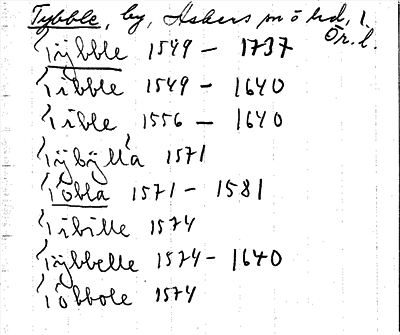 Tybble, by, Askers sn o hd, Ör. l.
Tÿbble 1549 – 1737
Tibble 1549 – 1640
Tible 1556 – 1640
Tÿbÿlla 1571
Tobla 1571 – 1581
Tibille 1574
Tÿbbelle 1574 – 1640
Tobbole 1574